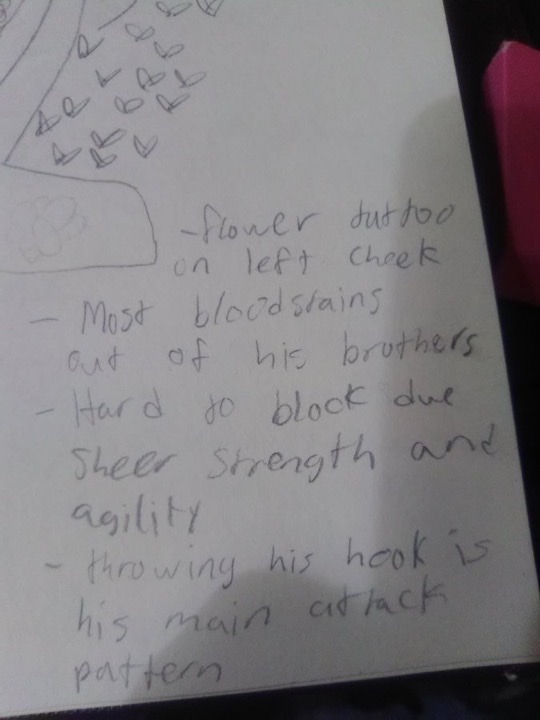 -flower tuttoo
on left cheek
- Most bloodstains
out of his brothers
- Hard to block due
Sheer Strength and
agility
- throwing his hook is
his main attack
pattern